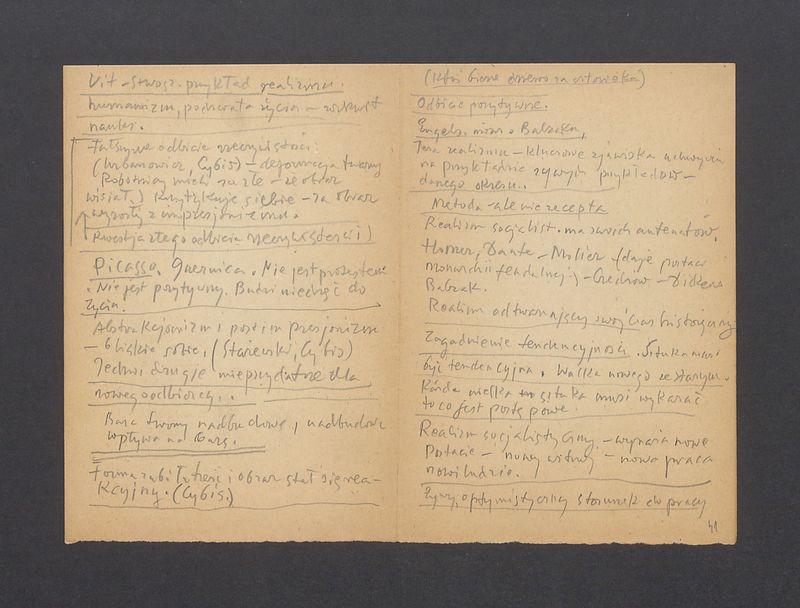 Vit-Stwosz. przykład realizmu.
humanizm, pochwała życia –
nauki.
Fałszywe odbicie rzeczywistości:
(Urbanowicz, Cybis) – deformacja twarzy
Robotnicy mieli za złe – że obraz
wisiał.) Krytykuje siebie – za obraz
wyrosły z impresjonizmu.
Kwestja złego odbicia rzeczywistości)
Picasso. Guernica. Nie jest
. Nie jest pozytywny. Budzi niechęć do
życia.
Abstrakcjonizm i postimpresjonizm
– bliskie sobie, (Stażewski, Cybis)
Jedno i drugie nieprzydatne dla
nowego odbiorcy..
Baza tworzy nadbudowę, nadbudowa
wpływa na bazę.
Forma zabiła treść i obraz stał się rea-
kcyjny. (Cybis.)
(Ktoś bierze drzewo za człowieka)
Odbicie pozytywne.
Engels. mówi o Balzaku,
Teza realizmu – kluczowe zjawiska uchwycić
na przykładzie żywych przykładów –
danego okresu..
Metoda – ale nie recepta
Realizm socjalist. ma swoich antenatów.
Homer, Dante – Molier (daje postaci
monarchii feudalnej) – Czechow – Dickens
Balzak.
Realizm odtwarzający swój czas historyczny
Zagadnienie tendencyjności. Sztuka musi
być tendencyjna. Walka nowego ze starym.
Każda wielka sztuka musi wykazać
to co jest postępowe.
Realizm socjalistyczny. – wyraża nowe
postacie – nowy ustrój – nowa praca
nowi ludzie.
Żywy, optymistyczny stosunek do pracy
41